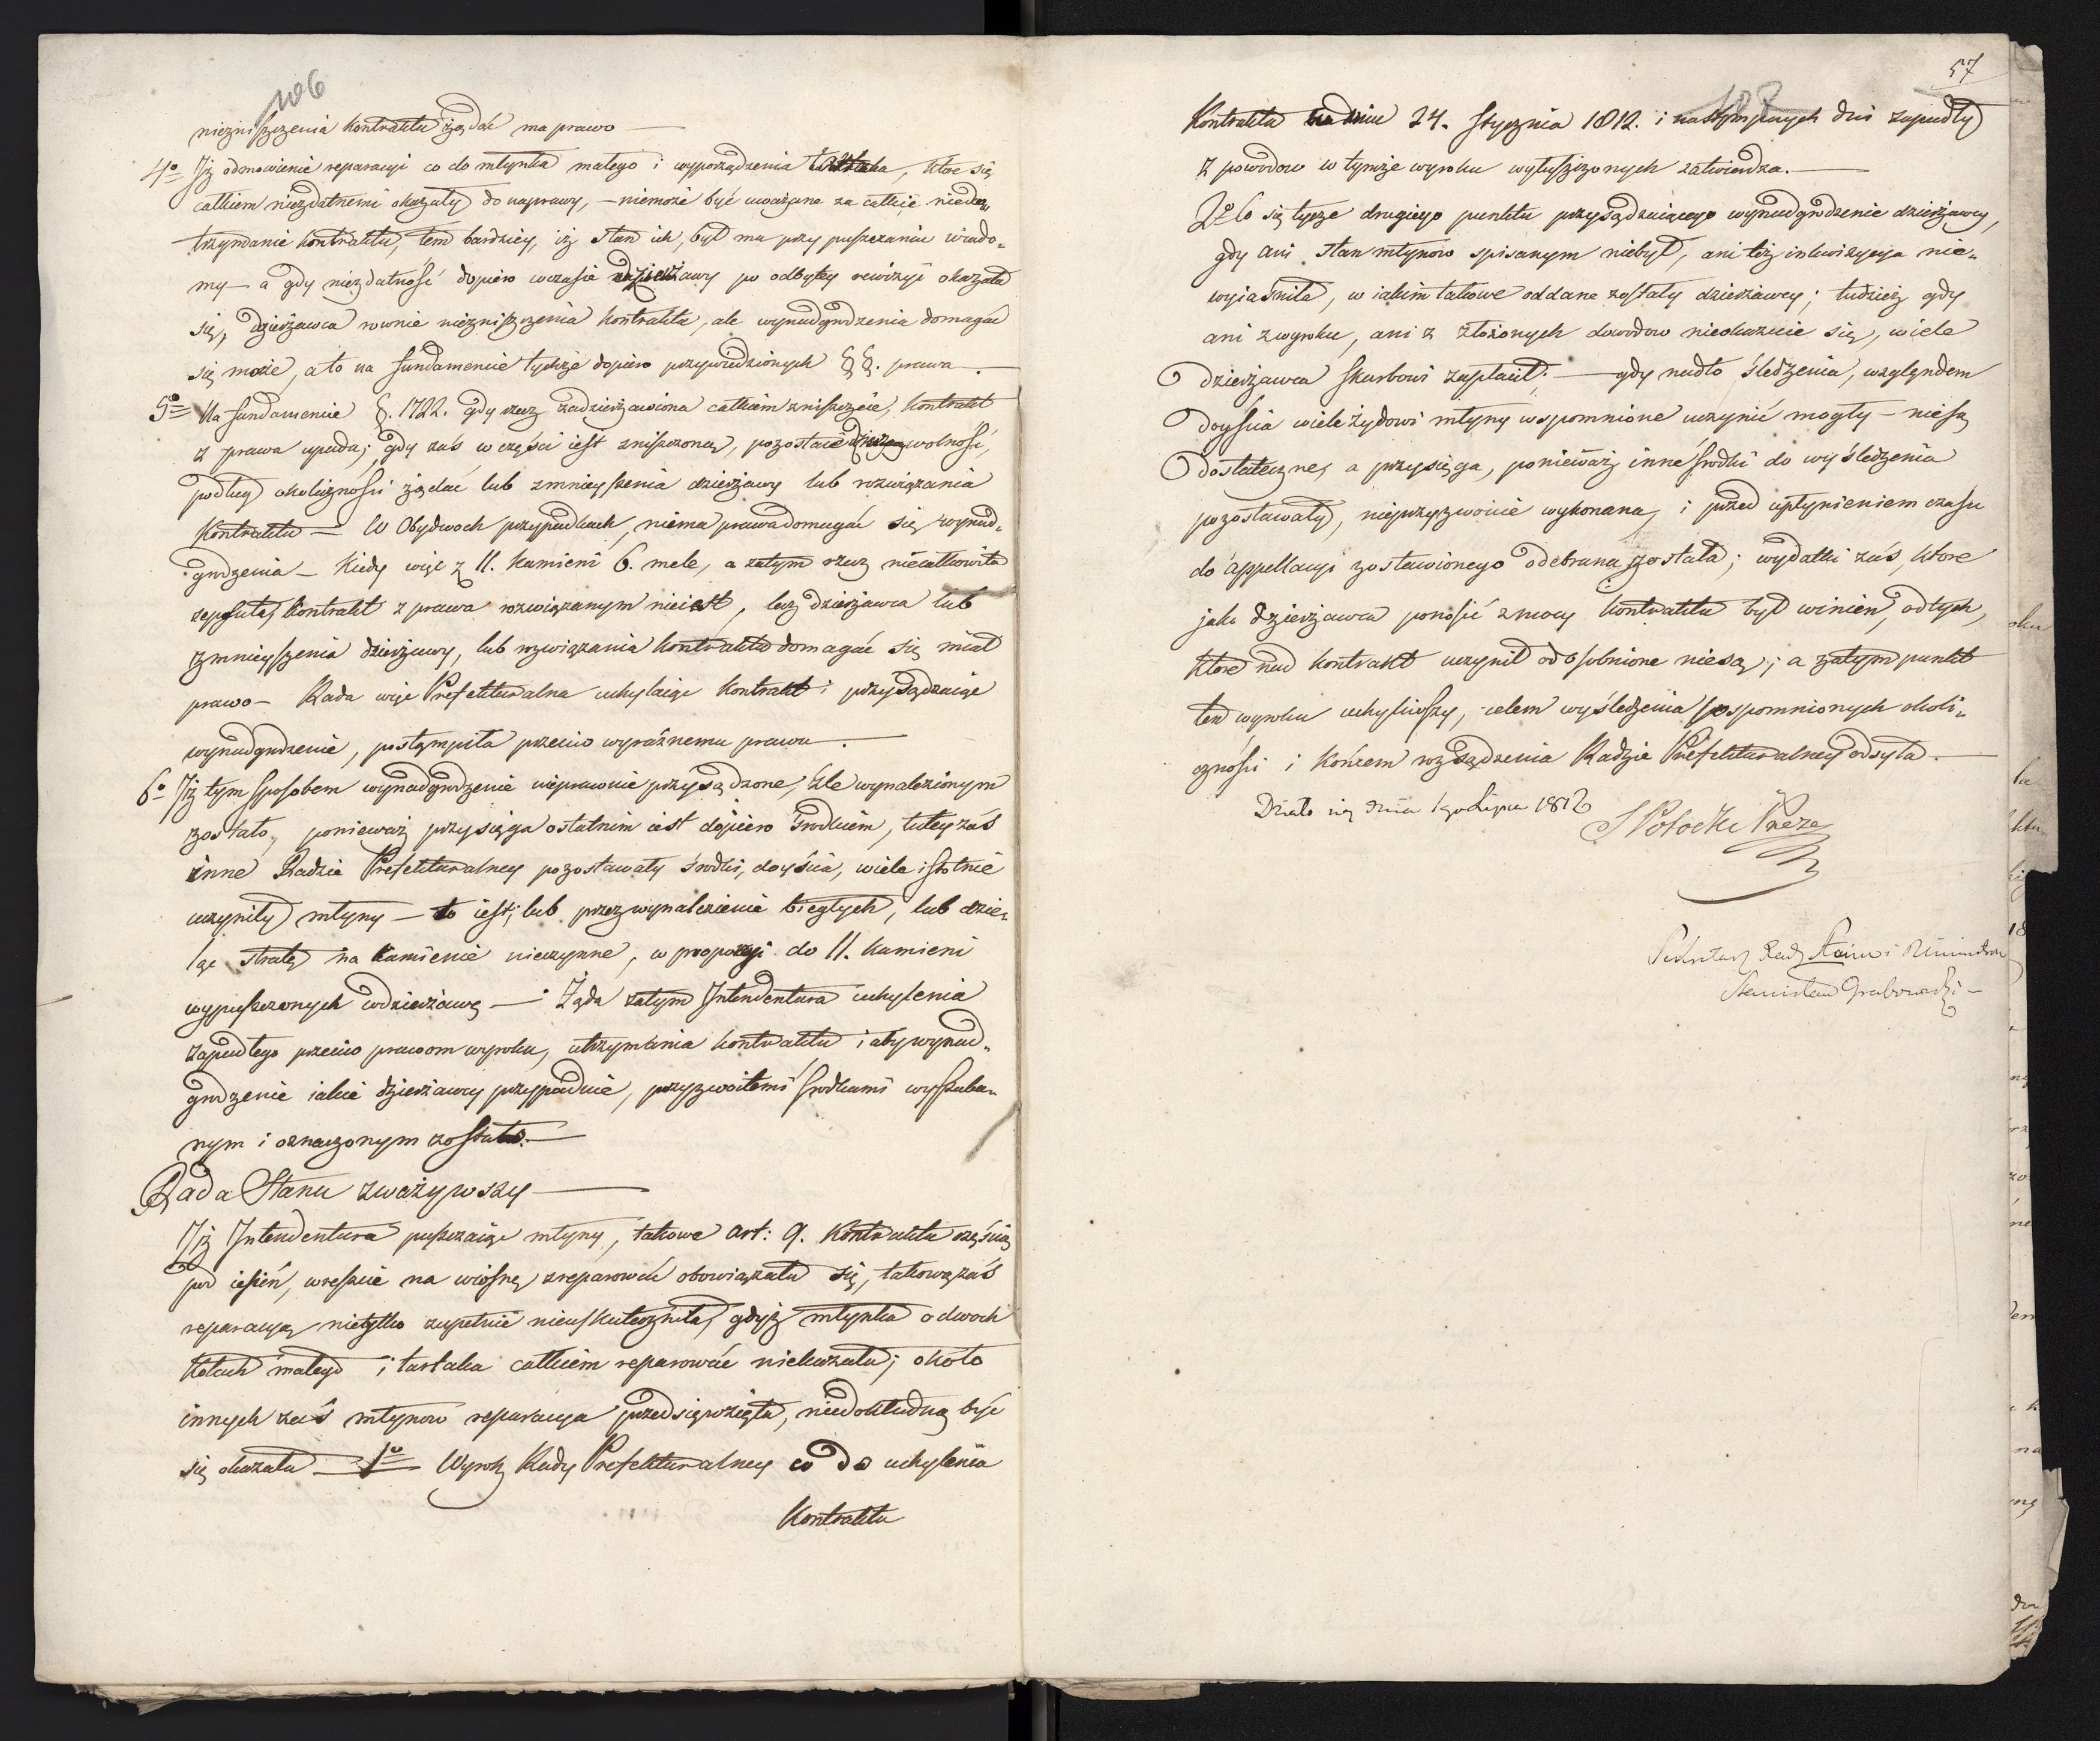 106
niezniszczenia kontraktu żądać ma prawo —
4o Iż odmowienie reparacyi co do młynka małego i wyporządzenia tartaka, ktore się
całkiem niezdatnemi okazały do naprawy, — niemoże być uważane za całkie niedo„
trzymanie kontraktu, tem bardziey, iż stan ich, był mu przy puszczaniu wiado„
my — a gdy niezdatność dopiero wczasie dzierżawy po odbytey rewizyi okazała
się, dzierżawca rownie niezniszczenia kontraktu, ale wynadgrodzenia domagać
się może, a to na fundamencie tychże dopiero przywiedzionych §§. prawa. —
5o Na fundamencie §. 1722. gdy rzecz zadzierżawiona całkiem zniszczeie, kontrakt
z prawa upada; gdy zaś w części iest zniszczoną, pozostaie wolność,
podług okoliczności żądać lub zmnieyszenia dzierżawy lub rozwiązania
kontraktu — W Obydwoch przypadkach, niema prawa domagać się wynad„
grodzenia — Kiedy więc z 11. kamieni 6. mele, a zatym rzecz niecałkowita
zepsuta, kontrakt z prawa rozwiązanym nieiest, lecz dzierżawca lub
zmnieyszenia dzierżawy, lub rozwiązania kontraktu domagać się miał
prawo — Rada więc Prefekturalna uchylaiąc kontrakt i przysądzaiąc
wynadgrodzenie, postąmpiła przeciw wyraźnemu prawu. —
6o Iż tym sposobem wynadgrodzenie nieprawnie przysądzone, źle wynalezionym
zostało, ponieważ przysięga ostatnim iest dopiero srodkiem, tutey zaś
inne Radzie Prefekturalney pozostawały środki, doyścia, wiele istotnie
uczyniły młyny — to iest; lub przez wynalezienie biegłych, lub dzie„
ląc stratę na kamienie nieczynne, w proporcyi do 11. kamieni
wypuszczonych wdzierżawę — Żąda zatym Intendentura uchylenia
zapadłego przeciw prawom wyroku, utrzymania kontraktu i aby wynad„
grodzenie iakie dzierżawcy przypadnie, przyzwoitemi srodkami wyszuka„
nym i oznaczonym zostało. —
Rada Stanu zważywszy —
Iż Intendentura puszczaiąc młyny, takowe art: 9. kontraktu częścią
pod iesień, wreszcie na wiosnę zreparować obowiązała się, takową zaś
reparacyą nietylko zupełnie nieuskuteczniła, gdyż młynka o dwoch
kołach małego i tartaka całkiem reparować niekazała; około
innych zaś młynow reparacya przedsięwzięta, niedokładną być
się okazała — 1o Wyrok Rady Prefekturalney co do uchylenia
Kontraktu
57
107
Kontraktu na dniu 24. Stycznia 1812. i nastympnych dni zapadły
z powodow w tymże wyroku wyłuszczonych zatwierdza. —
2o Co się tycze drugiego punktu przysądzaiącego wynadgrodzenie dzierżawcy,
gdy ani stan młynow spisanym niebył, ani też inkwizycya nie„
wyiaśniła, w iakim takowe oddane zostały dzierżawcy; tudzież gdy
ani z wyroku, ani z złożonych dowodow nieokazuie się, wiele
dzierżawca skarbowi zapłacił. — gdy nadto śledzenia, względem
doyścia wiele żydowi młyny wspomnione uczynić mogły — niesą
dostateczne, a przysięga, ponieważ inne srodki do wyśledzenia
pozostawały, nieprzyzwoicie wykonana, i przed upłynieniem czasu
do appellacyi zostawionego odebrana została; wydatki zaś, ktore
jako dzierżawca ponosić z mocy kontraktu był winien, od tych,
ktore nad kontrakt uczynił odosobnione niesą; a zatym punkt
ten wyroku uchyliwszy, celem wyśledzenia wspomnionych okoli„
czności i końcem rozsądzenia Radzie Prefekturalney odsyła. —
Działo się dnia 1go Lipca 1812
S Potocki Preze
Sekretarz Rady Stanu i Ministrow
Stanisław Grabowski —